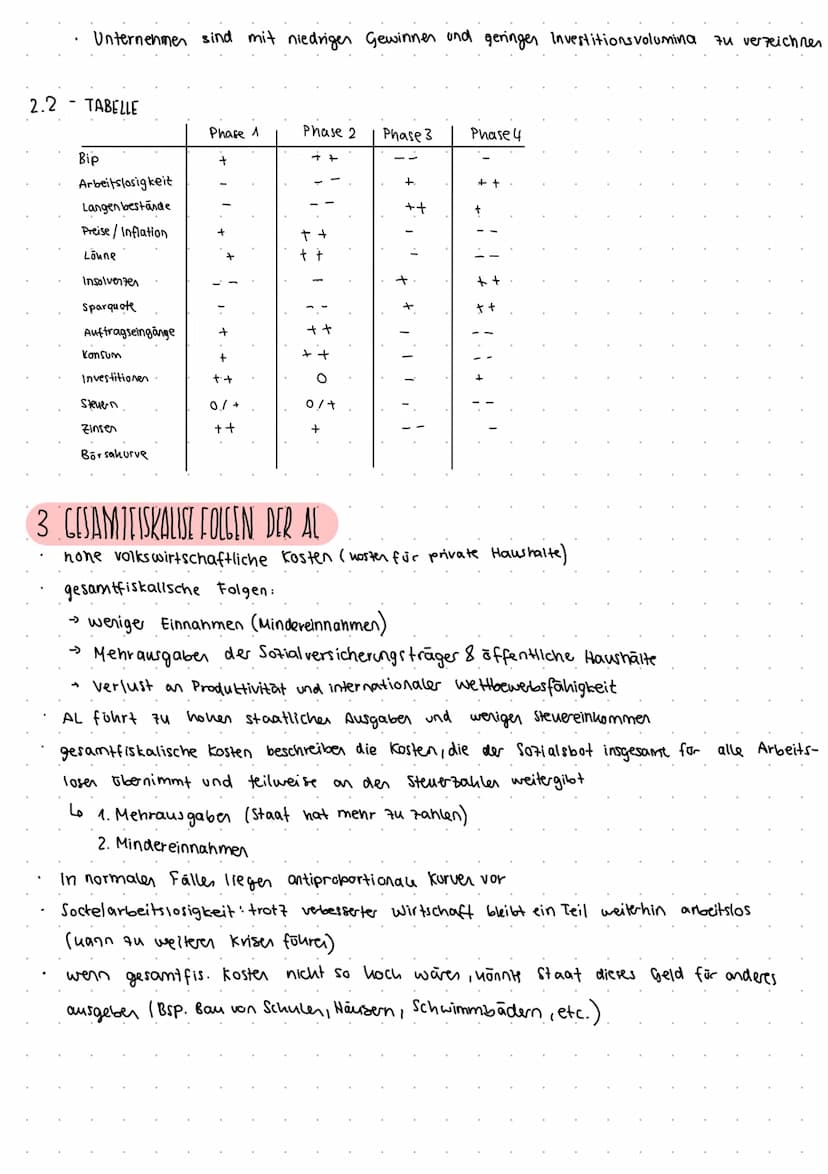 · Unternehmen sind mit niedrigen Gewinnen und geringen Investitionsvolumina zu verzeichnen
2.2 - TABELLE
Phase 1 Phase 2 Phase 3 Phase 4
Bip + ++ -- -
Arbeitslosigkeit - -- + ++
Langenbestände - -- ++ +
Preise / Inflation + ++ - --
Löhne + ++ - --
Insolvenzen -- - + ++
Sparquote - -- + ++
Auftragseingänge + ++ - --
Konsum + ++ - --
Investitionen ++ 0 - +
Steuern 0/+ 0/+ - --
Zinsen ++ + -- -
Börsakurve
3 GESAMTFISKALISE FOLGEN DER AL
· hohe volkswirtschaftliche Kosten (Kosten für private Haushalte)
· gesamtfiskalische Folgen:
→ weniger Einnahmen (Mindereinnahmen)
→ Mehrausgaben der Sozialversicherungsträger & öffentliche Haushälte
→ Verlust an Produktivität und internationaler Wettbewerbsfähigkeit
· AL führt zu hohen staatlichen Ausgaben und weniger Steuereinkommen
· gesamtfiskalische Kosten beschreiben die Kosten, die der Sozialsbat insgesamt für alle Arbeits-
losen übernimmt und teilweise an den Steuerzahler weitergibt
↳ 1. Mehrausgaben (Staat hat mehr zu zahlen)
2. Mindereinnahmen
· In normalen Fälles liegen antiproportionale Kurven vor
· Sockelarbeitslosigkeit: trotz verbesserter Wirtschaft bleibt ein Teil weiterhin arbeitslos
(kann zu weiteren Krisen führen)
· wenn gesamtfis. Kosten nicht so hoch wären, könnte Staat dieses Geld für anderes
ausgeben (Bsp. Bau von Schulen, Häusern, Schwimmbädern, etc.)